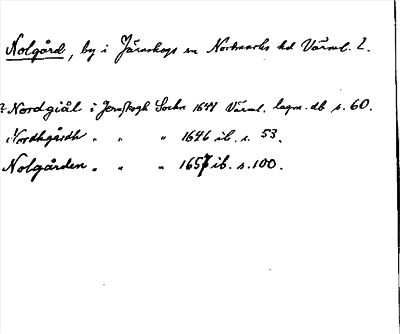 Nolgård, by i Järnskogs sn Nordmarks hd Värml. l.
? Nordgiäl i Jernskogh Sochn 1644 Värml. lagm. db s. 60.
Nordhgårdh " " " 1646 ib. s. 53.
Nolgården " " " 1657 ib. s. 100.